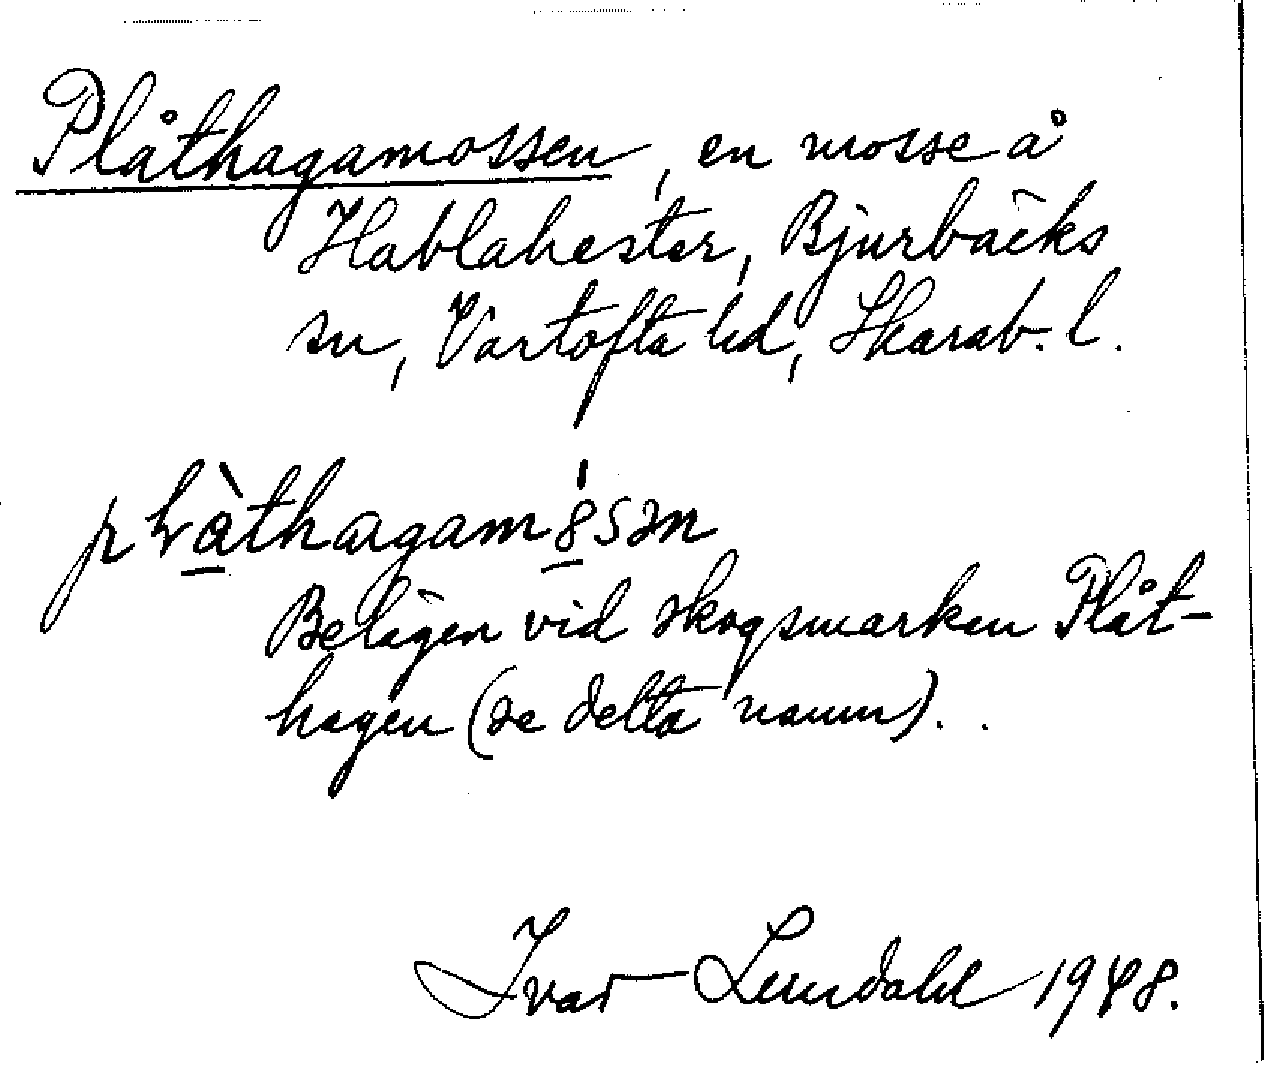 Plåthagamossen, en mosse å
Hablahester, Bjurbäcks
sn, Vartofta hd, Skarab. l.
Belägen vid skogsmarken Plåt-
hagen (se detta namn). .
Ivar Lundahl 1948.